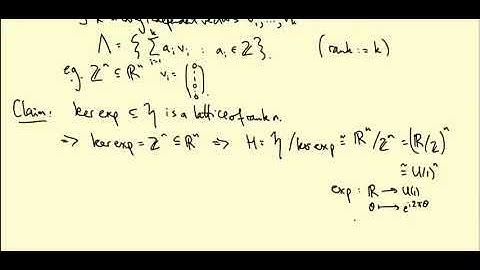 independent vectors v₁, ..., vₖ
Λ = { Σᵢ₌₁ᵏ aᵢ vᵢ : aᵢ ∈ ℤ }. (rank := k)
e.g. ℤⁿ ⊆ ℝⁿ vᵢ = (0 1 0 0)
Claim: ker exp ⊆ 𝔥 is a lattice of rank n.
⇒ ker exp = ℤⁿ ⊆ ℝⁿ ⇒ H = 𝔥 / ker exp ≅ ℝⁿ/ℤⁿ = (ℝ/ℤ)ⁿ
≅ U(1)ⁿ
exp : ℝ → U(1)
θ ↦ e^{i2πθ}